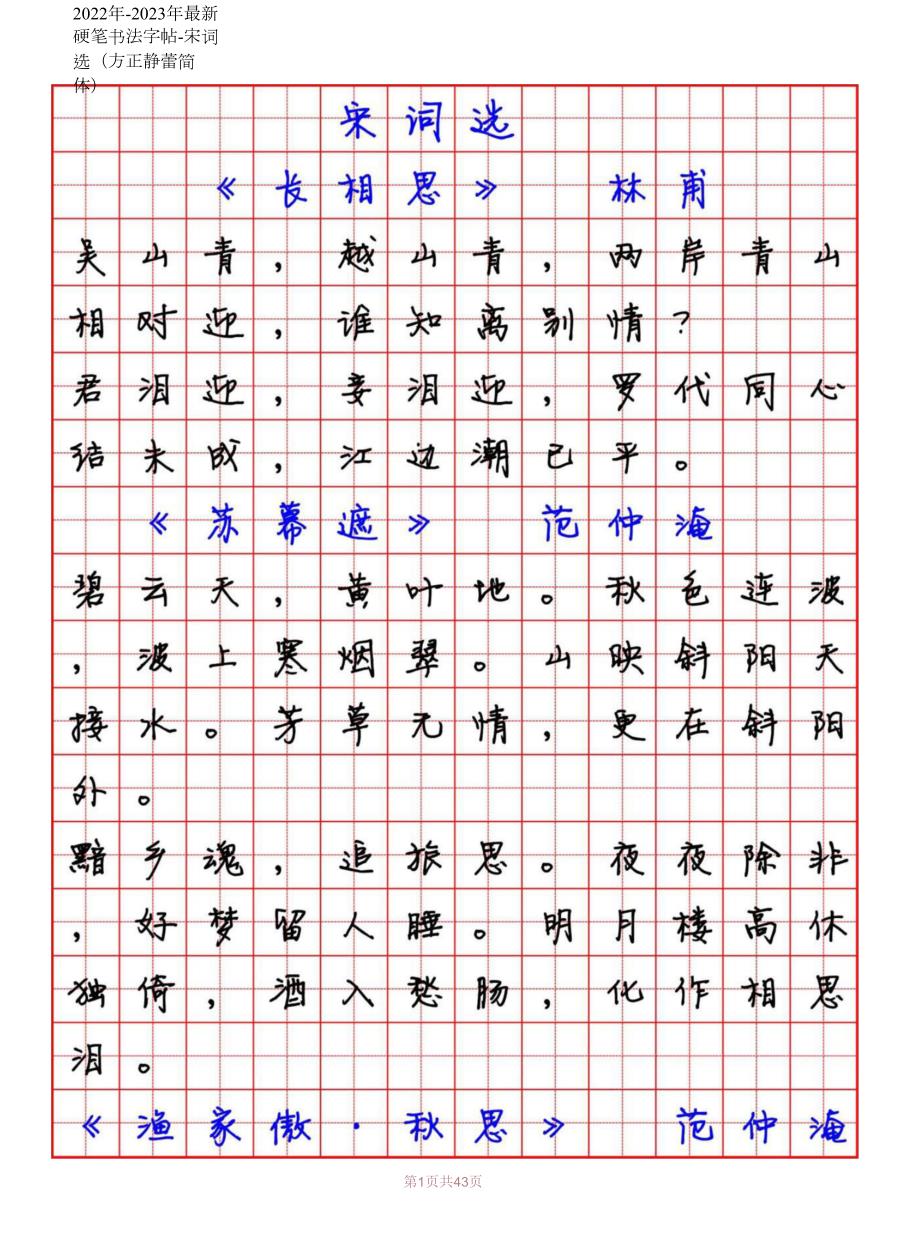 2022年-2023年最新
硬笔书法字帖-宋词
选（方正静蕾简
体）
宋词选
《长相思》 林甫
吴山青，越山青，两岸青山
相对迎，谁知离别情？
君泪迎，妾泪迎，罗代同心
结未成，江边潮已平。
《苏幕遮》 范仲淹
碧云天，黄叶地。秋色连波
，波上寒烟翠。山映斜阳天
接水。芳草无情，更在斜阳
外。
黯乡魂，追旅思。夜夜除非
，好梦留人睡。明月楼高休
独倚，酒入愁肠，化作相思
泪。
《渔家傲·秋思》 范仲淹
第1页共43页